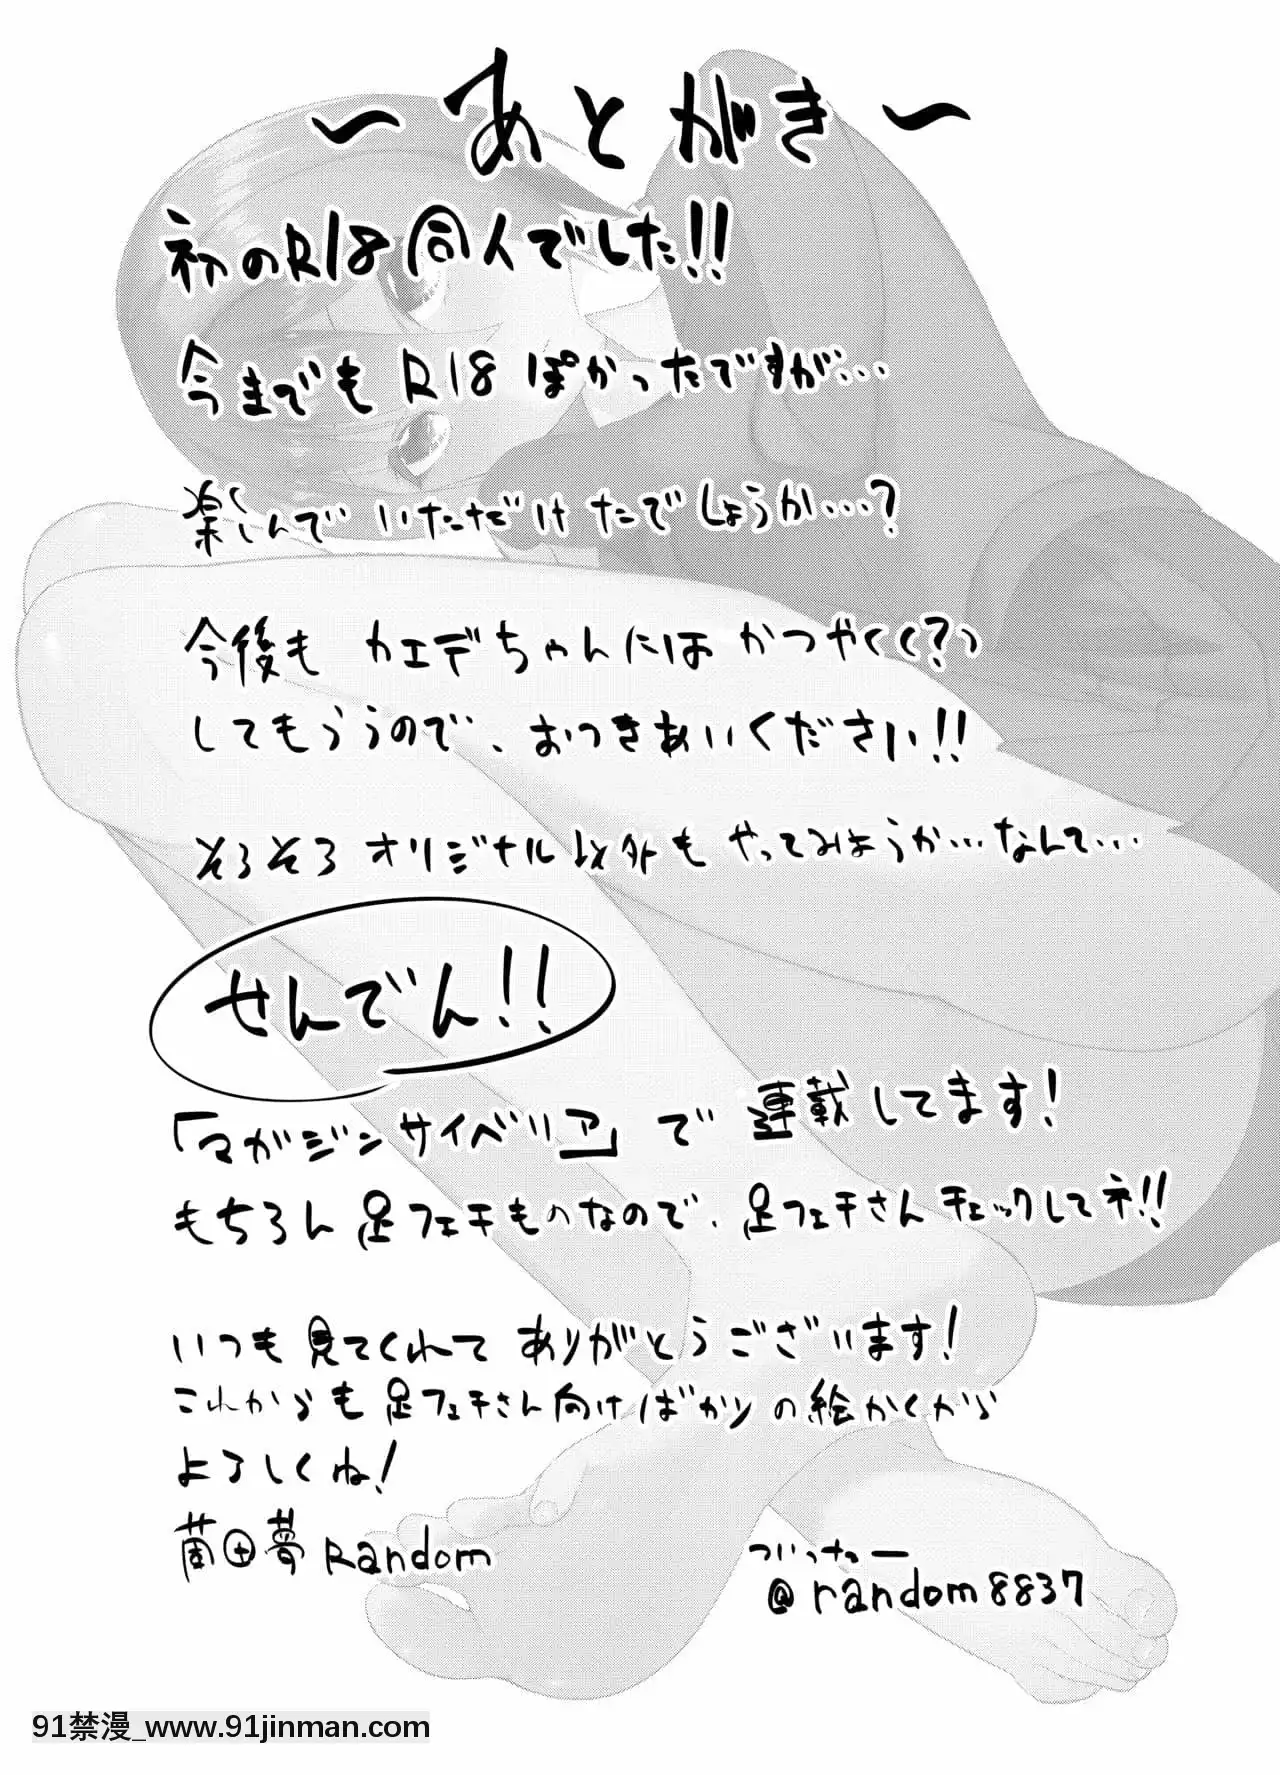 ～あとがき～
初のR18同人でした!!
今までもR18ぽかったですが…
楽しんでいただけたでしょうか…?
今後もカエデちゃんにはかつやくく(?)
してもらうので、おつきあいください!!
そろそろオリジナル以外もやってみようか…なんて…
せんでん!!
「マガジンサイベリア」で連載してます!
もちろん足フェチものなので、足フェチさんチェックしてネ!!
いつも見てくれてありがとうございます!
これからも足フェチさん向けばかりの絵かくから
よろしくね!
菌田夢Random
ついったー
@random8837
91禁漫_www.91jinman.com